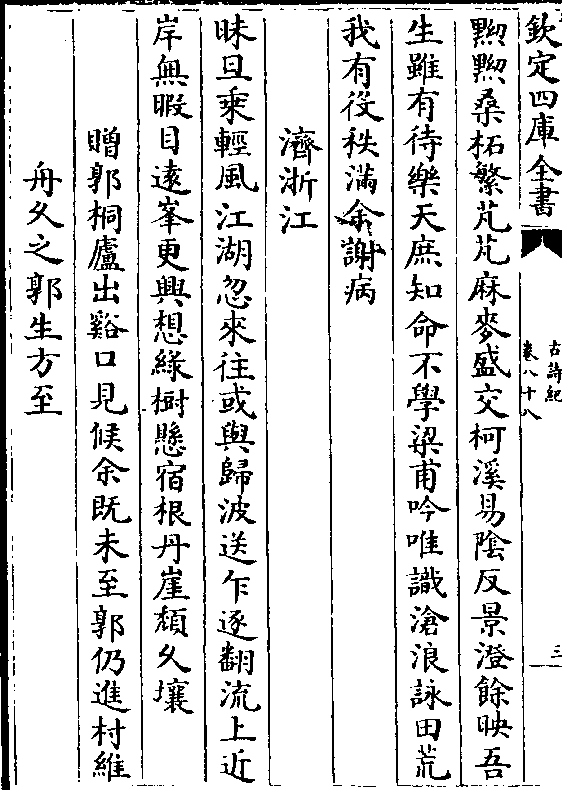 欽定四庫全書
古詩紀
卷八十八
三
黝黝桑柘繁芃芃麻麥盛交柯溪易陰反景澄餘映吾
生雖有待樂天庶知命不學梁甫吟唯識滄浪詠田荒
我有役秩滿余謝病
濟浙江
昧旦乘輕風江湖忽來往或與歸波送乍逐翻流上近
岸無暇目遠峯更興想緑樹懸宿根丹崖頹久壤
贈郭桐廬出谿口見候余既未至郭仍進村維
舟久之郭生方至